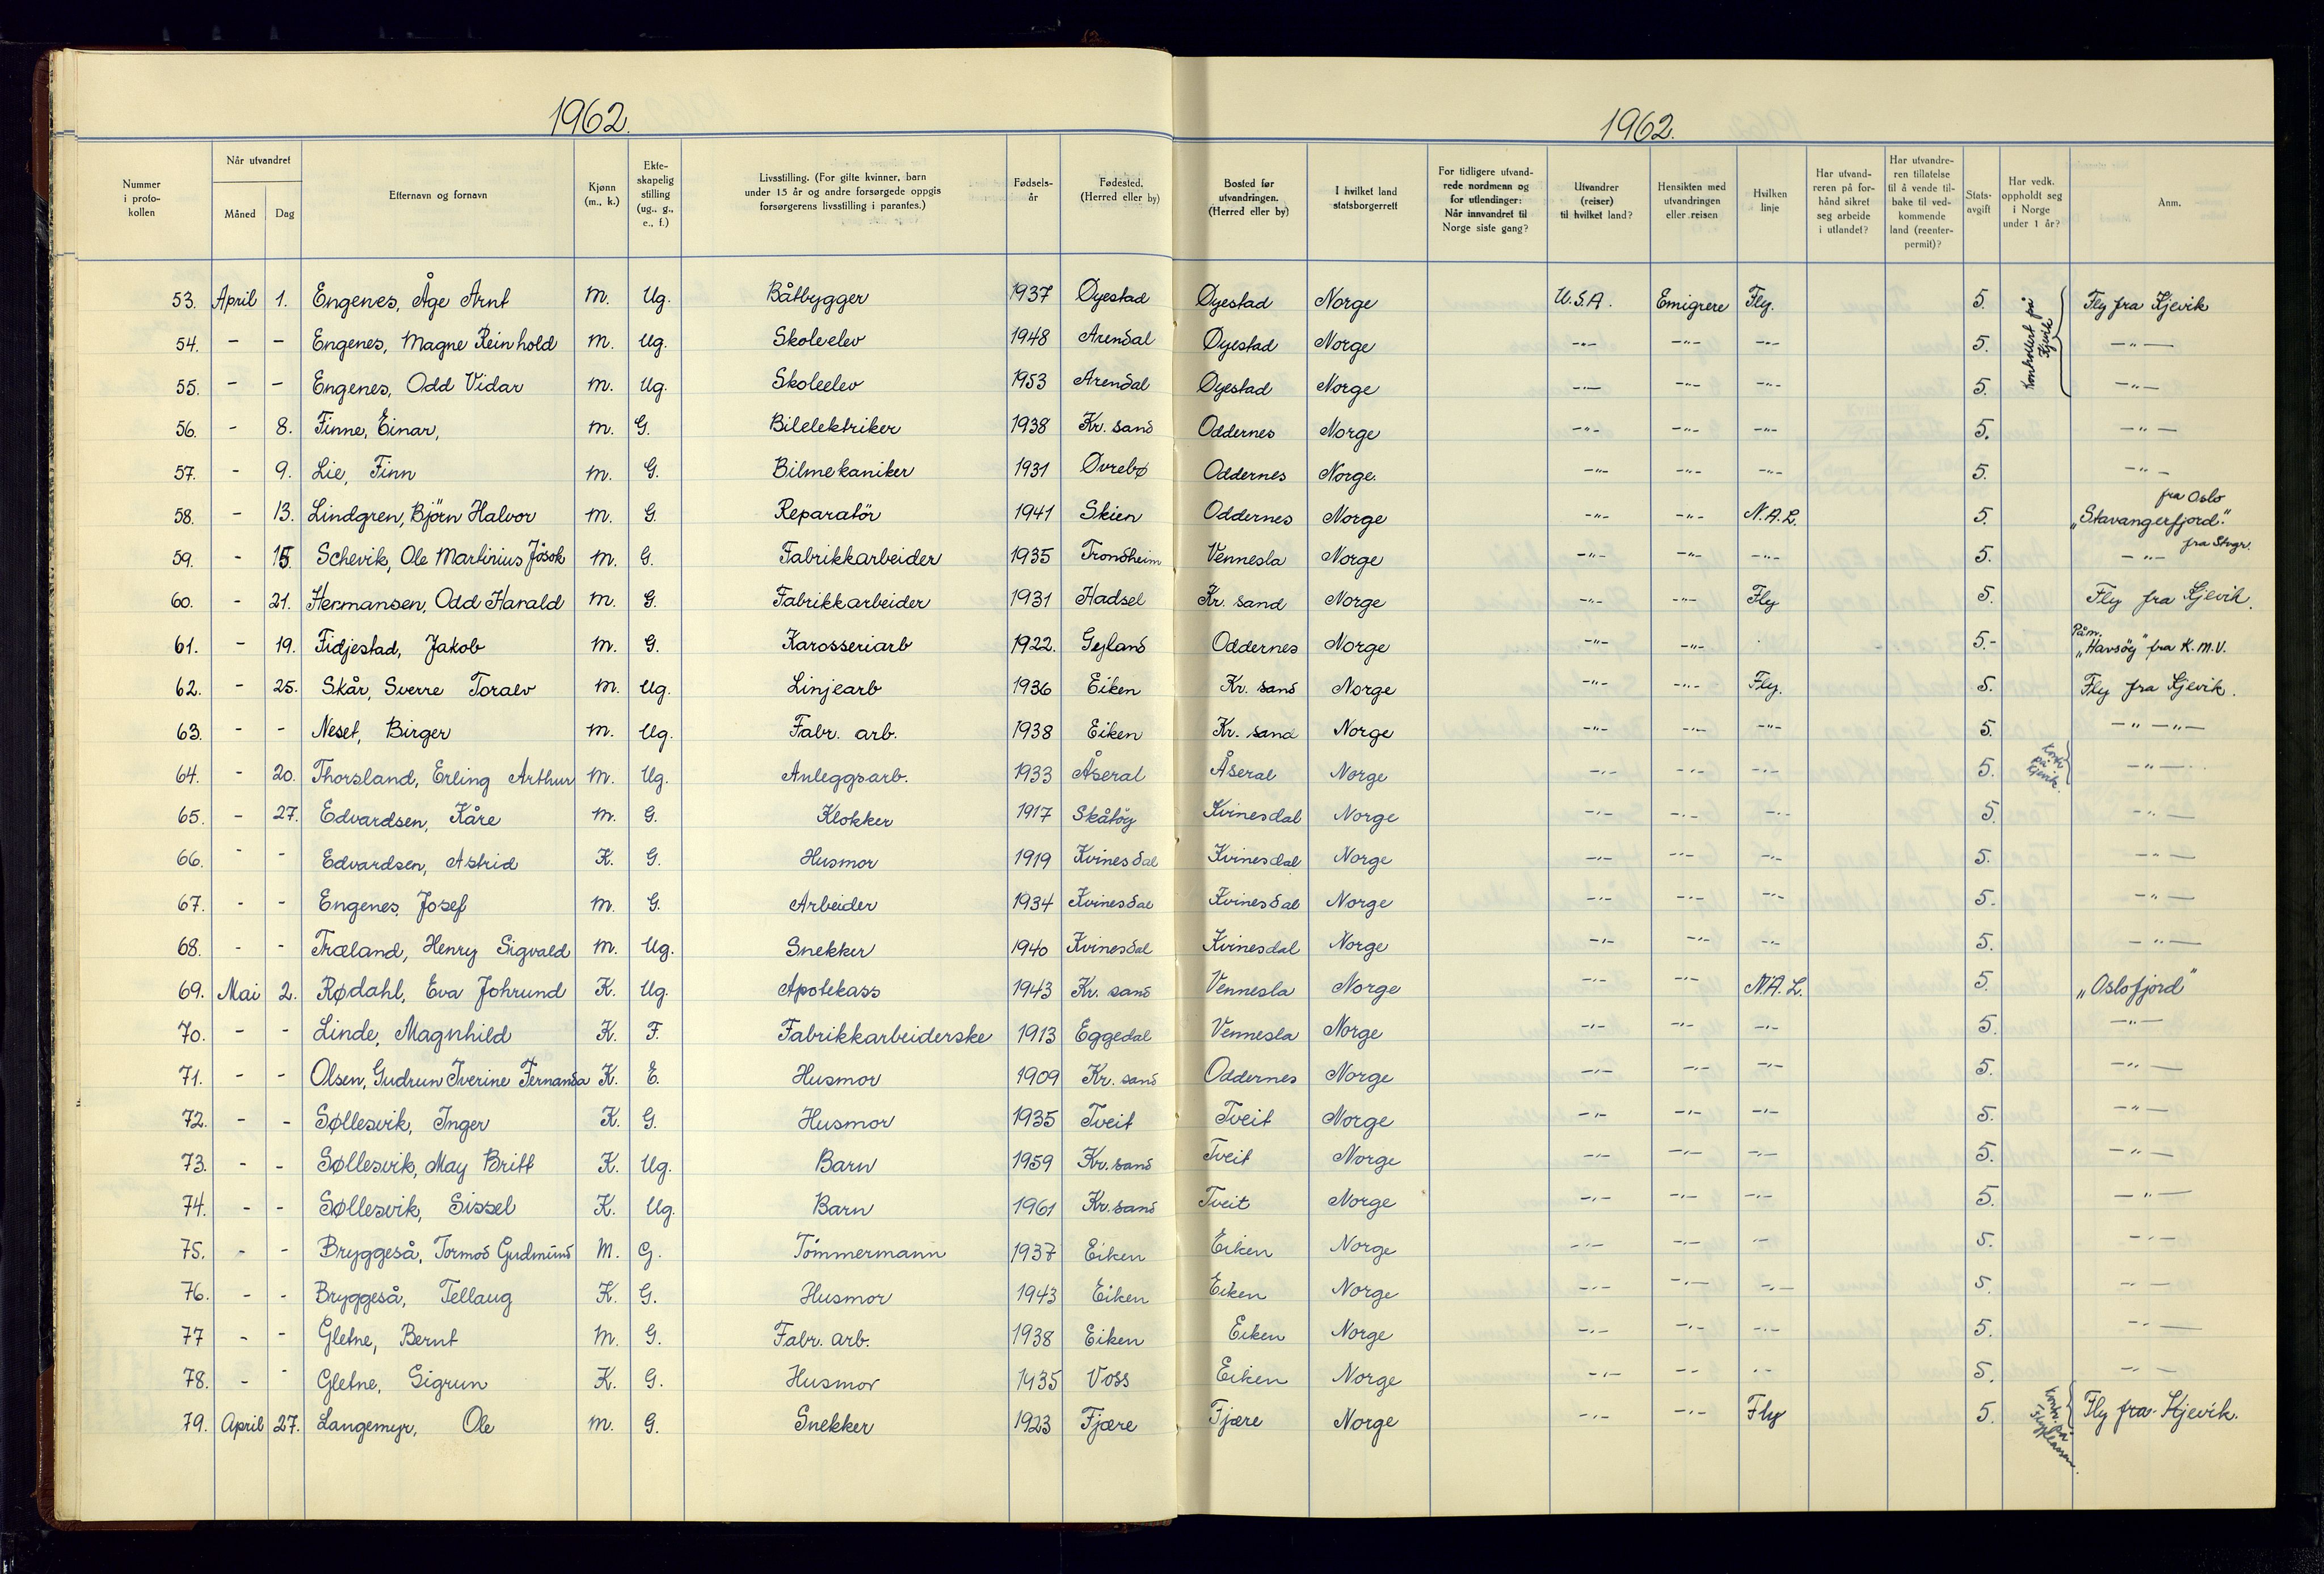 1962.
1962.
Nummer i proto-kollen | Når utvandret Måned Dag | Etternavn og fornavn | Kjønn (m., k.) | Ekte-skapelig stilling (ug., g., e., f.) | Livsstilling. (For gifte kvinner, barn under 15 år og andre forsørgede oppgis forsørgerens livsstilling i parantes.) | Fødsels-år | Fødested. (Herred eller by) | Bosted før utvandringen. (Herred eller by) | I hvilket land statsborgerrett | For tidligere utvand-rede nordmenn og for utlendinger: Når innvandret til Norge siste gang? | Utvandrer (reiser) til hvilket land? | Hensikten med utvandringen eller reisen | Hvilken linje | Har utvand-reren på for-hånd sikret seg arbeide i utlandet? | Har utvandre-ren tillatelse til å vende til-bake til ved-kommende land (reenter-permit)? | Stats-avgift | Har vedk. oppholdt seg i Norge under 1 år? | Anm.
53. April 1. Engenes, Åge Arnt m. Ug. Båtbygger 1937 Øyestad Øyestad Norge U.S.A. Emigrere Fly. 5. Kontrollert på Kjevik Fly fra Kjevik
54. - - Engenes, Magne Reinhold m. Ug. Skoleelev 1948 Arendal Øyestad Norge -"- -"- -"- 5. -"-
55. - - Engenes, Odd Vidar m. Ug. Skoleelev 1953 Arendal Øyestad Norge -"- -"- -"- 5. -"-
56. - 8. Finne, Einar, m. G. Bilelektriker 1938 Kr. sand Oddernes Norge -"- -"- -"- 5. -"-
57. - 9. Lie, Finn m. G. Bilmekaniker 1931 Øvrebø Oddernes Norge. -"- -"- -"- 5. -"-
58. - 13. Lindgren, Bjørn Halvor m. G. Reparatör 1941 Skien Oddernes Norge -"- -"- N.A.L. 5. "Stavangerfjord." fra Oslo
59. - 15. Schevik, Ole Martinius Jåsok m. G. Fabrikkarbeider 1935 Trondheim Vennesla Norge -"- -"- -"- 5. -"- fra Stvgr.
60. - 21. Hermansen, Odd Harald m. G. Fabrikkarbeider 1931 Hadsel Kr. sand Norge -"- -"- Fly 5. Fly fra Kjevik.
61. - 19. Fidjestad, Jakob m. G. Karosseriarb 1922. Gyland Oddernes Norge -"- -"- 5.- På m. "Havsöy" fra K.M.V.
62. - 25. Skår, Sverre Toralv m. Ug. Linjearb 1936 Eiken Kr. sand Norge -"- -"- Fly. 5. Fly fra Kjevik.
63. - - Neset, Birger m. Ug. Fabr. arb. 1938 Eiken Kr. sand Norge -"- -"- -"- 5. -"- -"-
64. - 20. Thorsland, Erling Arthur m. Ug. Anleggsarb. 1933 Åseral Åseral Norge -"- -"- -"- 5. Kontr. på Kjevik. -"-
65. - 27. Edvardsen, Kåre m. G. Klokker 1917 Skåtøy Kvinesdal Norge -"- -"- -"- 5. -"-
66. - - Edvardsen, Astrid K. G. Husmor 1919 Kvinesdal Kvinesdal Norge -"- -"- -"- 5. -"-
67. - - Engenes, Josef m. G. Arbeider 1934 Kvinesdal Kvinesdal Norge -"- -"- -"- 5. -"-
68. - - Træland, Henry Sigvald m. Ug. Snekker 1940 Kvinesdal Kvinesdal Norge -"- -"- -"- 5. -"-
69. Mai 2. Rødahl, Eva Johrund K. Ug. Apotekass 1943 Kr. sand Vennesla Norge -"- -"- N.A.L. 5. "Oslofjord"
70. - - Linde, Magnhild K. F. Fabrikkarbeiderske 1913 Eggedal Vennesla Norge -"- -"- -"- 5. -"-
71. - - Olsen, Gudrun Iverine Fernanda K. E. Husmor 1909 Kr. sand Oddernes Norge -"- -"- -"- 5. -"-
72. - - Søllesvik, Inger K. G. Husmor 1935 Tveit Tveit Norge -"- -"- -"- 5. -"-
73. - - Søllesvik, May Britt K. Ug. Barn 1959 Kr. sand Tveit Norge -"- -"- -"- 5. -"-
74. - - Søllesvik, Sissel K. Ug. Barn 1961 Kr. sand Tveit Norge -"- -"- -"- 5. -"-
75. - - Bryggeså, Tormod Gudmund M. G. Tømmermann 1937 Eiken Eiken Norge -"- -"- -"- 5. -"-
76. - - Bryggeså, Tellaug K. G. Husmor 1943 Eiken Eiken Norge -"- -"- -"- 5. -"-
77 - - Gletne, Bernt m. G. Fabr. arb. 1938 Eiken Eiken Norge -"- -"- -"- 5. -"-
78. - - Gletne, Sigrun K. G. Husmor 1935 Voss Eiken Norge -"- -"- -"- 5. -"-
79. April 27. Langemyr, Ole m. G. Snekker 1923 Fjære Fjære Norge -"- -"- Fly 5. Kontr. på Flyplassen. Fly fra Kjevik.